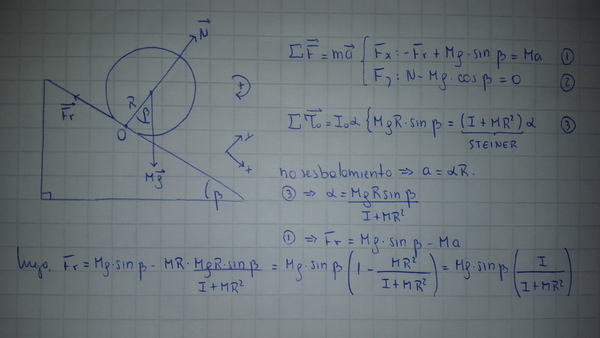 N⃗
R
β
F⃗r
O
Mg⃗
+
y
x
β
ΣF⃗ = ma⃗ { Fx: -Fr + Mg·sin β = Ma ①
Fy: N - Mg·cos β = 0 ②
Στ⃗o = Io α { MgR·sin β = (I + MR²) α ③
STEINER
no resbalamiento ⇒ a = αR.
③ ⇒ α = MgR sin β / (I + MR²)
① ⇒ Fr = Mg·sin β - Ma
luego, Fr = Mg·sin β - MR · MgR·sin β / (I + MR²) = Mg·sin β (1 - MR² / (I + MR²)) = Mg·sin β (I / (I + MR²))